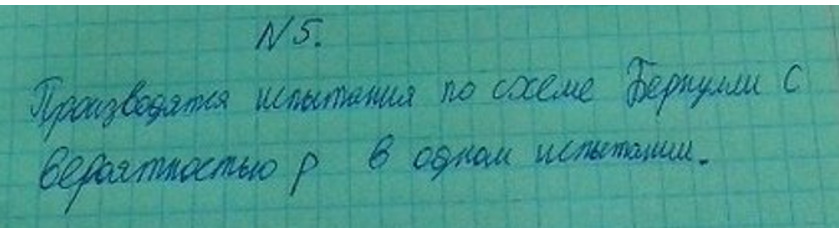 N 5.
Производятся испытания по схеме Бернулли с
вероятностью p в одном испытании.